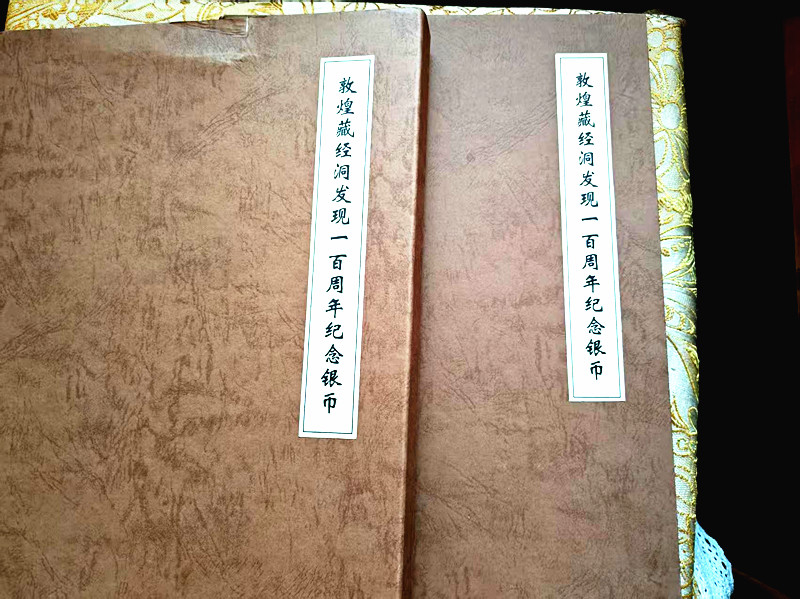 敦煌藏经洞发现一百周年纪念银币
敦煌藏经洞发现一百周年纪念银币